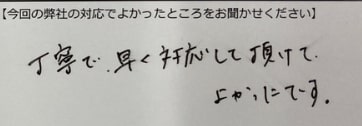 【今回の弊社の対応でよかったところをお聞かせください】
丁寧で、早く対応して頂けて
よかったです。